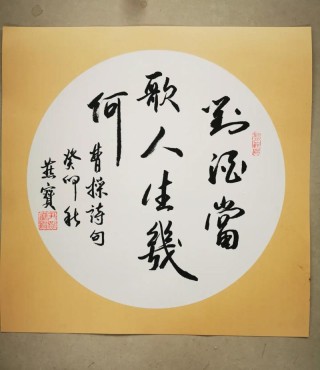 對酒當
歌人生幾
何
曹操詩句
癸卯秋
燕寶